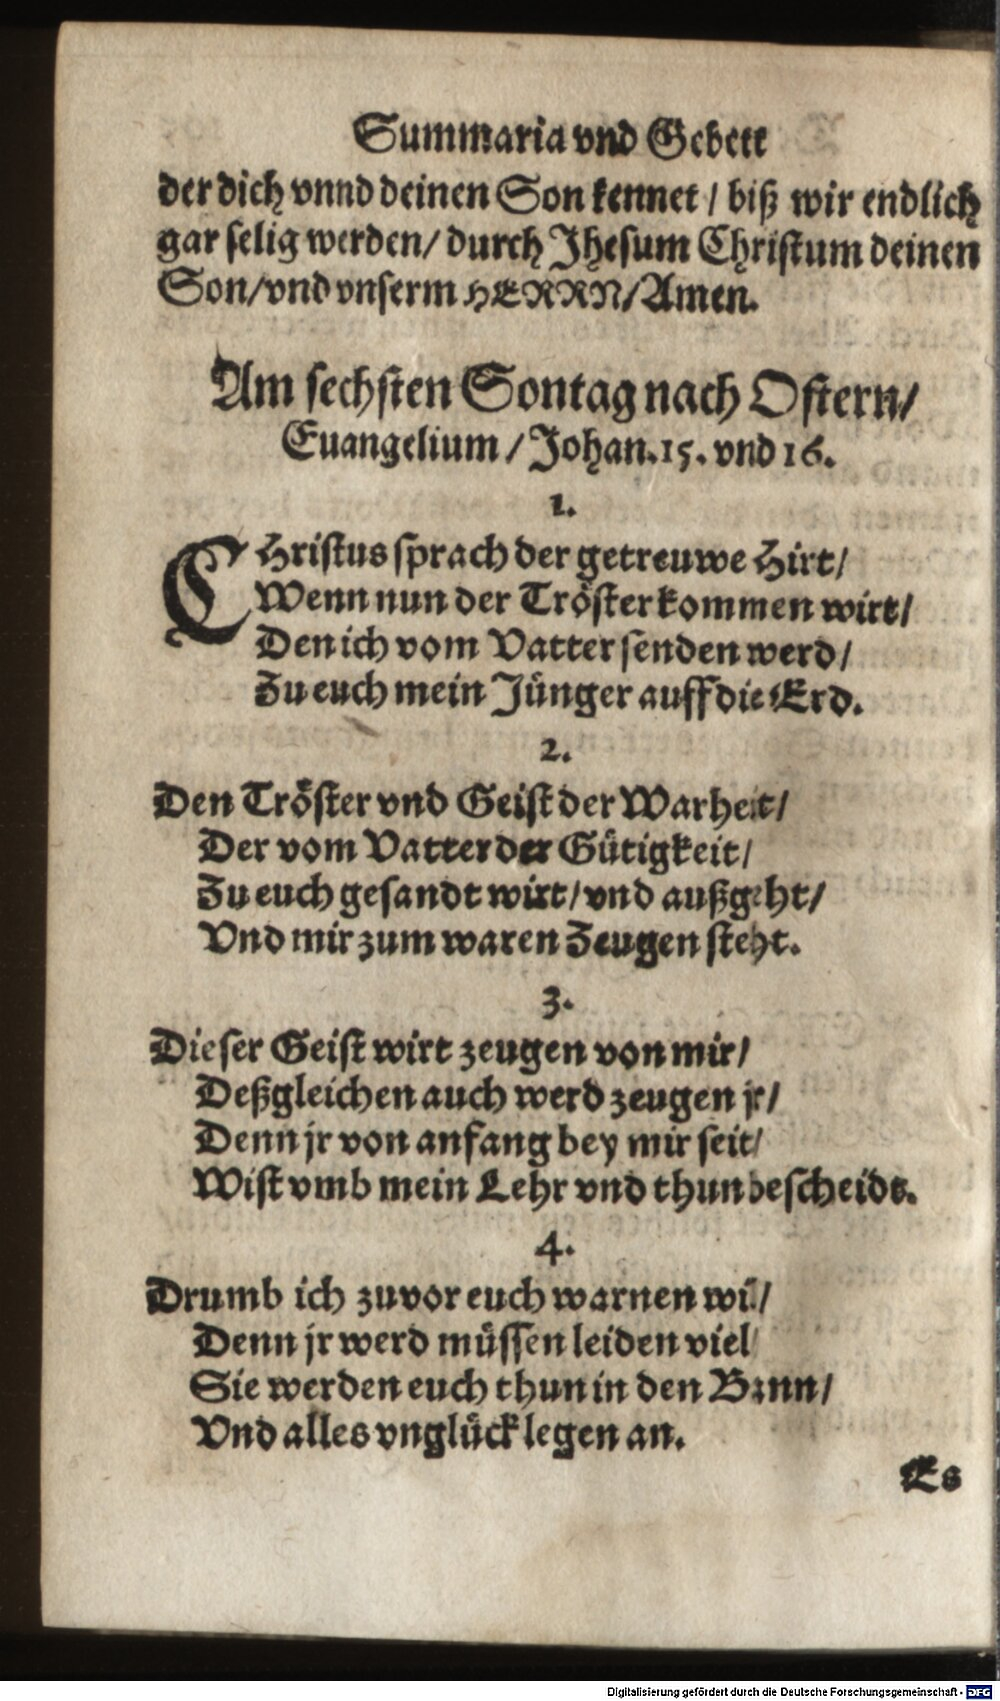 Summaria vnd Gebett
der dich vnnd deinen Son kennet / biß wir endlich
gar selig werden / durch Jhesum Christum deinen
Son / vnd vnserm HERRN / Amen.
Am sechsten Sontag nach Ostern /
Euangelium / Johan. 15. vnd 16.
1.
CHristus sprach der getreuwe Hirt /
Wenn nun der Tröster kommen wirt /
Den ich vom Vatter senden werd /
Zu euch mein Jünger auff die Erd.
2.
Den Tröster vnd Geist der Warheit /
Der vom Vatter der Gütigkeit /
Zu euch gesandt wirt / vnd außgeht /
Vnd mir zum waren Zeugen steht.
3.
Dieser Geist wirt zeugen von mir /
Deßgleichen auch werd zeugen jr /
Denn jr von anfang bey mir seit /
Wist vmb mein Lehr vnd thun bescheidt.
4.
Drumb ich zuvor euch warnen wil /
Denn jr werd müssen leiden viel /
Sie werden euch thun in den Bann /
Vnd alles vnglück legen an.
Es
Digitalisierung gefördert durch die Deutsche Forschungsgemeinschaft - DFG